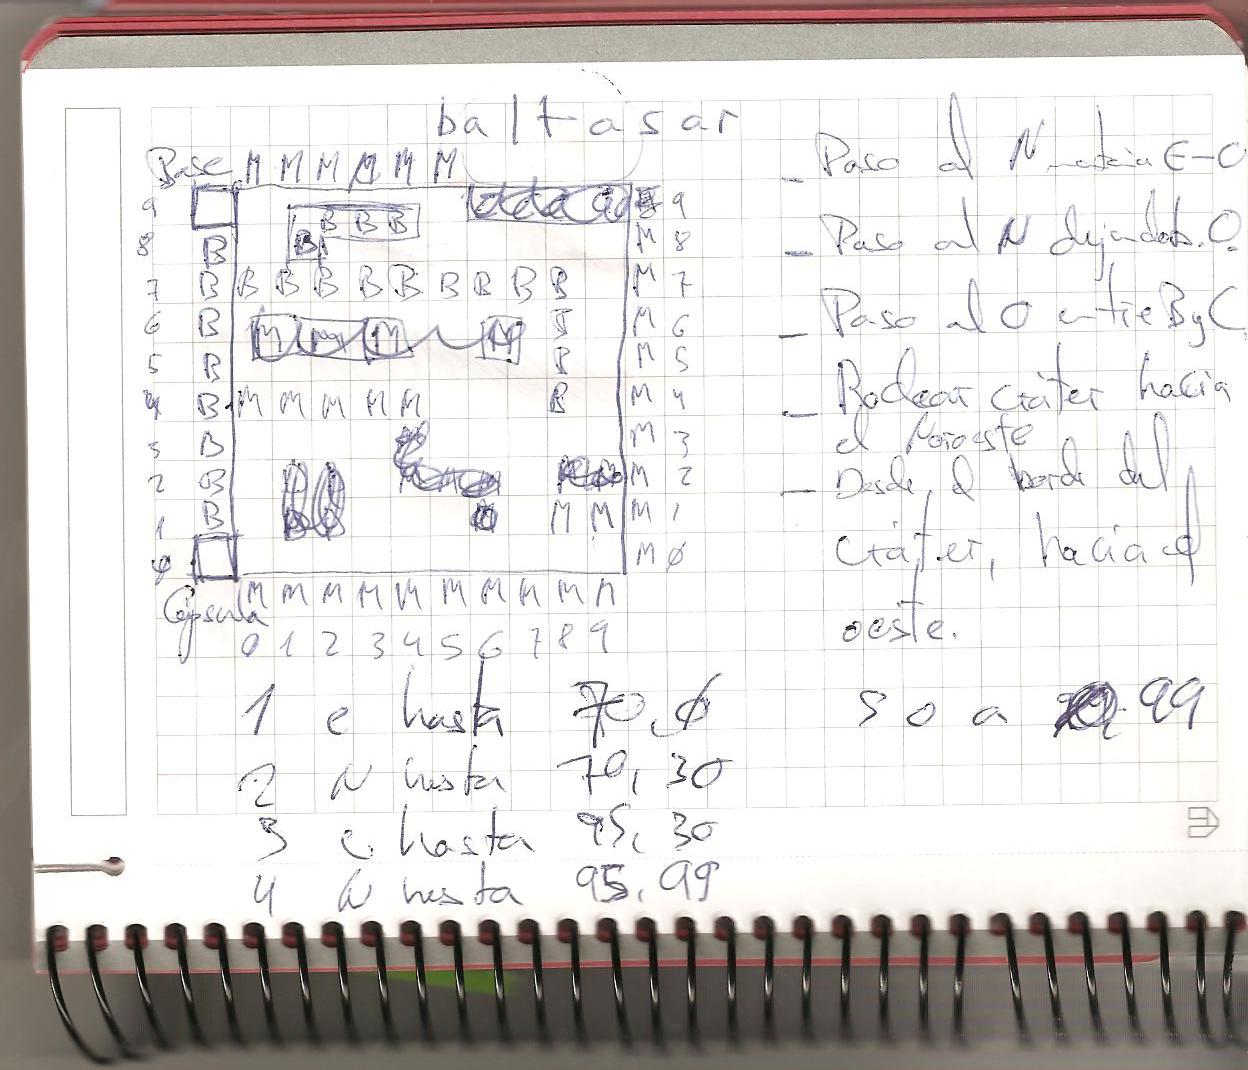 baltasar
Base M M M M M M
9 9
B B B
8 B B M 8
7 B B B B B B B B B B M 7
6 B M M M M M 6
5 B B M 5
4 B M M M M M B M 4
3 B M 3
2 B M 2
1 B M M M 1
0 M 0
Cápsula M M M M M M M M M M
0 1 2 3 4 5 6 7 8 9
1 e hasta 70,0
2 N hasta 70,30
3 e hasta 95,30
4 N hasta 95,99
- Paso al N E-O
- Paso al N O.
- Paso al O entre B y C
- Rodear cráter hacia
el Noroeste
- Desde el borde del
cráter, hacia el
oeste.
5 o a 99